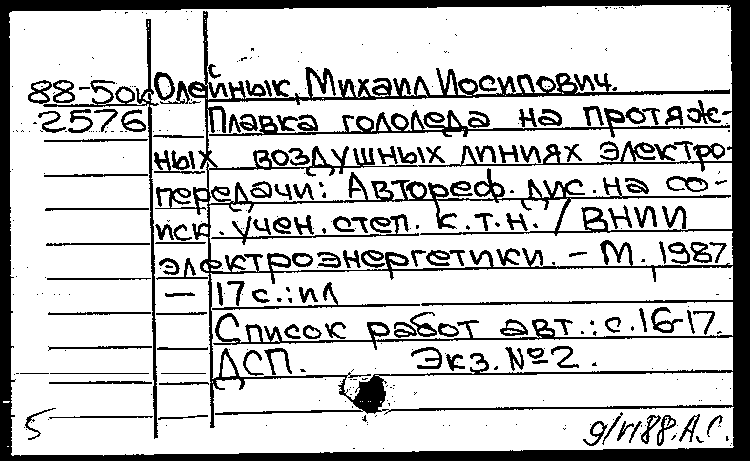 88-50к Олейнык, Михаил Иосипович.
2576 Плавка гололеда на протяж-
ных воздушных линиях электро-
передачи: Автореф. дис. на со-
иск. учен. степ. к.т.н. / ВНИИ
электроэнергетики. – М. 1987
— 17 с.: ил
Список работ авт.: с. 16-17.
ДСП. Экз. №2.
5 9/VI88. А.С.